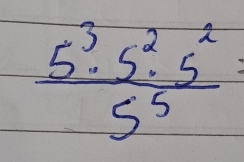 5³ · 5² · 5² =
5⁵